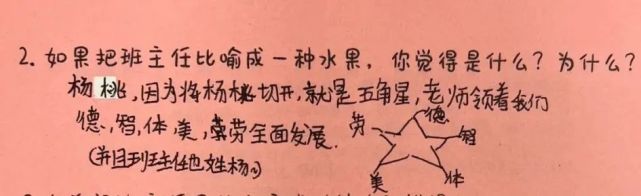 2. 如果把班主任比喻成一种水果，你觉得是什么？为什么？
杨桃，因为将杨桃切开，就是五角星，老师领着我们
德，智，体，美，劳全面发展.
(并且班主任也姓杨)
德
劳
智
美
体